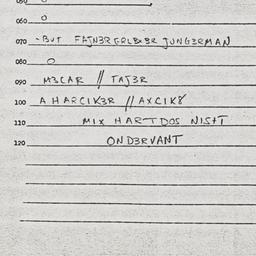 050
060 O
070 -BUT FATNƎR GRLEBER JUNGƎRMAN
080 O
090 MƎCAR // TAJƎR
100 A HARCIKƎR // AXCIK8
110 MIX HART DOS NISHT
120 ONDƎRVANT